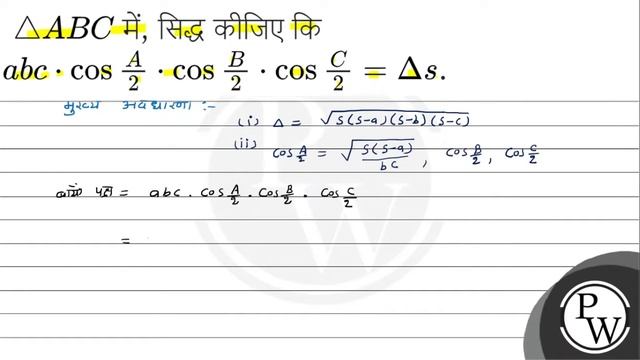 △ABC में, सिद्ध कीजिए कि
abc · cos A/2 · cos B/2 · cos C/2 = Δs.
मुख्य अवधारणा :-
(i) Δ = √s(s-a)(s-b)(s-c)
(ii) cos A/2 = √s(s-a)/bc , cos B/2 , cos C/2
बायाँ पक्ष = abc . cos A/2 . cos B/2 . cos C/2
=
P
W